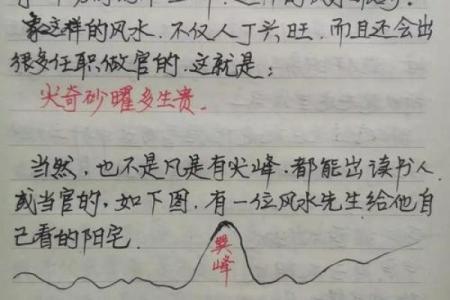 象这样的风水.不仅人丁兴旺.而且还会出
很多任职做官的.这就是:
尖奇砂曜多生贵.
当然,也不是凡是有尖峰.都能出读书人
或当官的,如下图.有一位风水先生给他自
己看的阳宅.
巽峰